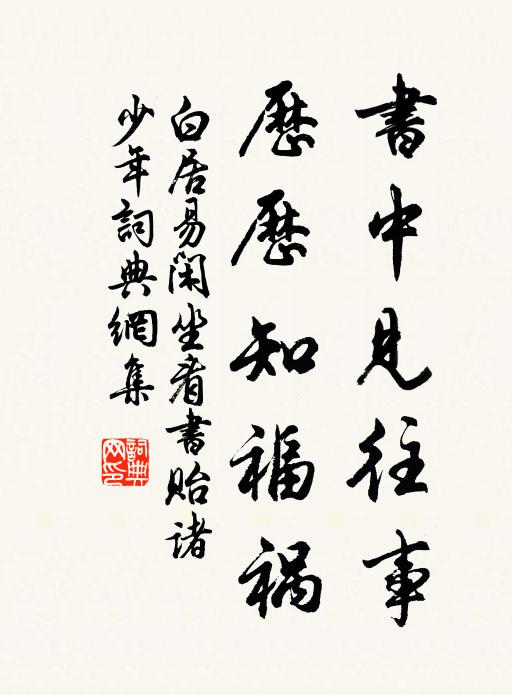 書中見往事
歷歷知福禍
白居易閑坐看書貽諸
少年詞典網集
詞典网印